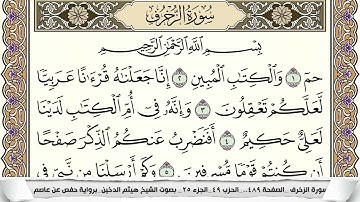 سورة الزخرف
بِسْمِ اللَّهِ الرَّحْمَٰنِ الرَّحِيمِ
حمٓ ۝١ وَالْكِتَابِ الْمُبِينِ ۝٢ إِنَّا جَعَلْنَاهُ قُرْءَانًا عَرَبِيًّا
لَّعَلَّكُمْ تَعْقِلُونَ ۝٣ وَإِنَّهُ فِي أُمِّ الْكِتَابِ لَدَيْنَا
لَعَلِيٌّ حَكِيمٌ ۝٤ أَفَنَضْرِبُ عَنكُمُ الذِّكْرَ صَفْحًا
أَن كُنتُمْ قَوْمًا مُّسْرِفِينَ ۝٥ وَكَمْ أَرْسَلْنَا مِن نَّبِيٍّ فِي
سورة الزخرف _ الصفحة ٤٨٩_ الحزب ٤٩ _الجزء ٢٥ _ بصوت الشيخ هيثم الدخين _برواية حفص عن عاصم